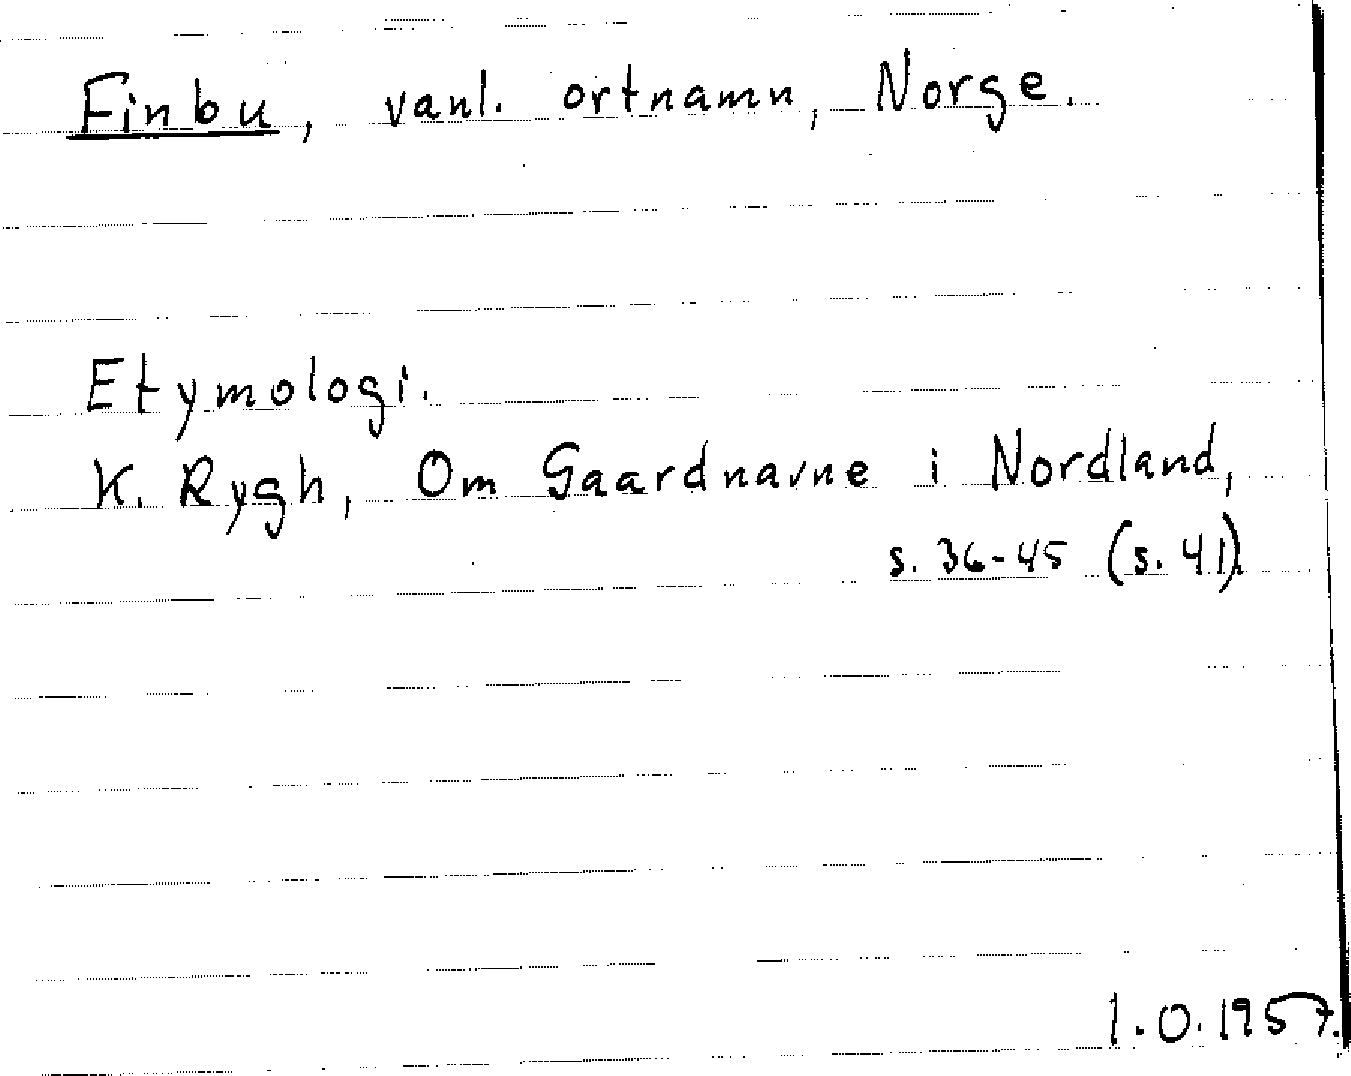 Finbu, vanl. ortnamn, Norge.
Etymologi.
K. Rygh, Om Gaardnavne i Nordland,
s. 36-45 (s. 41).
1.0.1957.